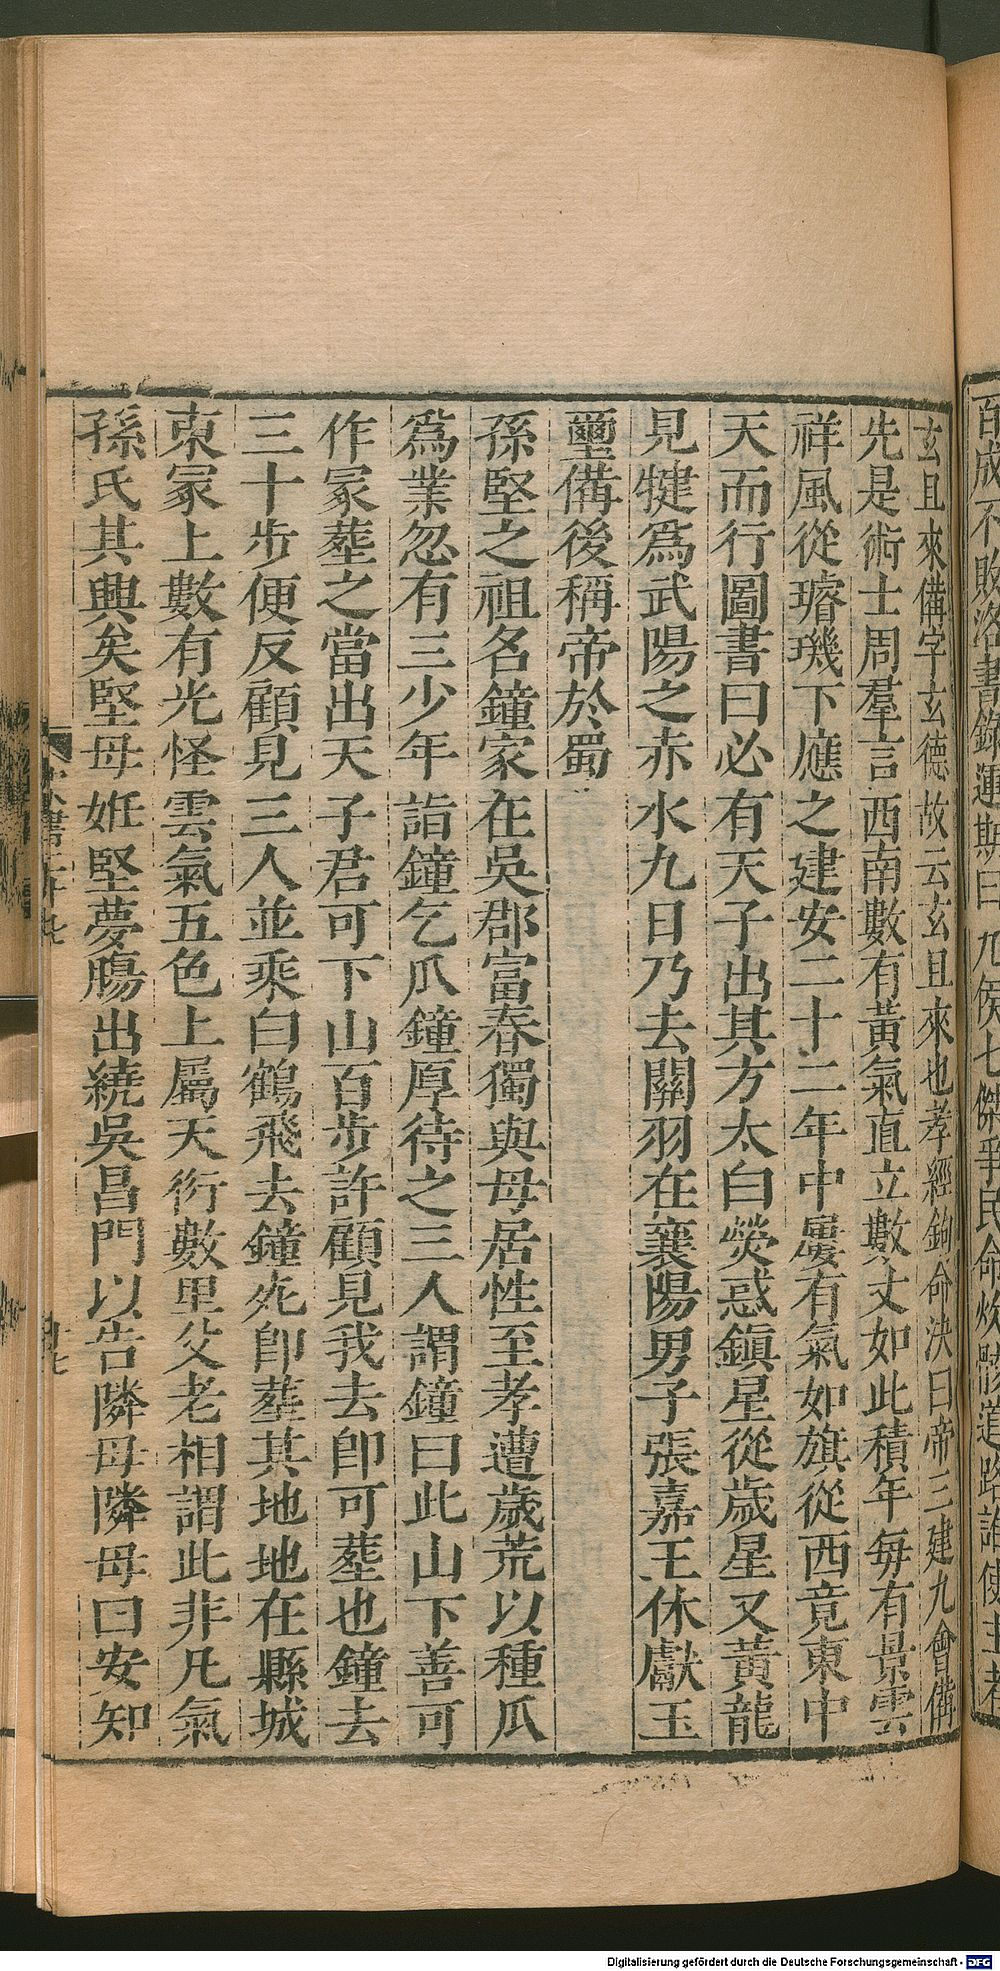 玄且來備字玄德故云玄且來也孝經鉤命決曰帝三建九會備
先是術士周羣言西南數有黃氣直立數丈如此積年每有景雲
祥風從璿璣下應之建安二十二年中屢有氣如旗從西竟東中
天而行圖書曰必有天子出其方太白熒惑鎮星從歲星又黃龍
見犍爲武陽之赤水九日乃去關羽在襄陽男子張嘉王休獻玉
璽備後稱帝於蜀
孫堅之祖名鐘家在吳郡富春獨與母居性至孝遭歲荒以種瓜
爲業忽有三少年詣鐘乞瓜鐘厚待之三人謂鐘曰此山下善可
作冢葬之當出天子君可下山百步許顧見我去卽可葬也鐘去
三十步便反顧見三人並乘白鶴飛去鐘死卽葬其地地在縣城
東冢上數有光怪雲氣五色上屬天衍數里父老相謂此非凡氣
孫氏其興矣堅母姙堅夢腸出繞吳昌門以告隣母隣母曰安知
百成不敗洛書錄運期曰九侯七傑爭民命炊骸道路
Digitalisierung gefördert durch die Deutsche Forschungsgemeinschaft - DFG